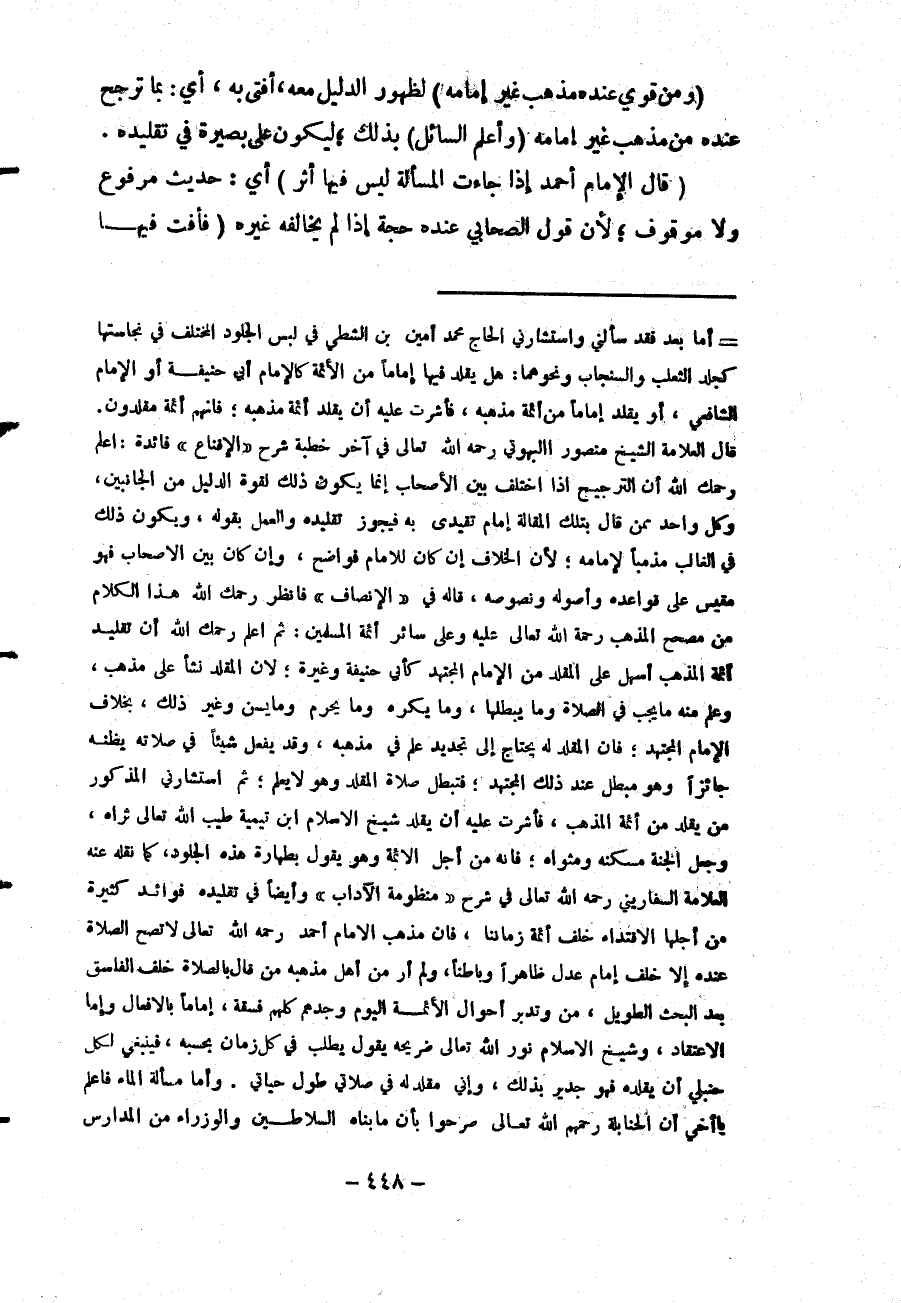 (ومن قوي عنده مذهب غير إمامه) لظهور الدليل معه، أفتى به ، أي : بما ترجح
عنده من مذهب غير إمامه (وأعلم السائل) بذلك ؛ ليكون على بصيرة في تقليده .
( قال الإمام أحمد إذا جاءت المسألة ليس فيها أثر ) أي : حديث مرفوع
ولا موقوف ؛ لأن قول الصحابي عنده حجة إذا لم يخالفه غيره ( فأفت فيهـــا
= أما بعد فقد سألني واستشارني الحاج محمد أمين بن الشطي في لبس الجلود المختلف في نجاستها
كجلد الثعلب والسنجاب ونحوهما: هل يقلد فيها إماماً من الأئمة كالإمام أبي حنيفـــة أو الإمام
الشافعي ، أو يقلد إماماً من أئمة مذهبه ، فأشرت عليه أن يقلد أئمة مذهبه ؛ فانهم أئمة مقلدون.
قال العلامة الشيخ منصور االبهوتي رحمه الله تعالى في آخر خطبة شرح «الإقناع» فائدة : اعلم
رحمك الله أن الترجيح اذا اختلف بين الأصحاب إنما يكون ذلك لقوة الدليل من الجانبين،
وكل واحد ممن قال بتلك المقالة إمام تقيدى به فيجوز تقليده والعمل بقوله ، ويكون ذلك
في الغالب مذهباً لإمامه ؛ لأن الخلاف إن كان للامام فواضح ، وإن كان بين الاصحاب فهو
مقيس على قواعده وأصوله ونصوصه ، قاله في « الإنصاف » فانظر رحمك الله هـذا الكلام
من مصحح المذهب رحمة الله تعالى عليه وعلى سائر أئمة المسلمين : ثم اعلم رحمك الله أن تقليـد
أئمة المذهب أسهل على المقلد من الإمام المجتهد كأبي حنيفة وغيرة ؛ لان المقلد نشأ على مذهب ،
وعلم منه مايجب في الصلاة وما يبطلها ، وما يكره وما يحرم ومايسن وغير ذلك ، بخلاف
الإمام المجتهد ؛ فان المقلد له يحتاج إلى تجديد علم في مذهبه ، وقد يفعل شيئاً في صلاته يظنـه
جائزاً وهو مبطل عند ذلك المجتهد ؛ فتبطل صلاة المقلد وهو لايعلم ؛ ثم استشارني المذكور
من يقلد من أئمة المذهب ، فأشرت عليه أن يقلد شيخ الاسلام ابن تيمية طيب الله تعالى ثراه ،
وجعل الجنة مسكنه ومثواه ؛ فانه من أجل الائمة وهو يقول بطهارة هذه الجلود، كما نقله عنه
العلامة السفاريني رحمه الله تعالى في شرح « منظومة الآداب » وأيضاً في تقليده فوائـد كثيرة
من أجلها الاقتداء خلف أئمة زماننا ، فان مذهب الامام أحمد رحمه الله تعالى لاتصح الصلاة
عنده إلا خلف إمام عدل ظاهراً وباطناً، ولم أر من أهل مذهبه من قال بالصلاة خلف الفاسق
بعد البحث الطويل ، من وتدبر أحوال الأئمـــة اليوم وجدهم كلهم فسقة ، إماماً بالافعال وإما
الاعتقاد ، وشيخ الاسلام نور الله تعالى ضريحه يقول يطلب في كل زمان بحسبه ، فينبغي لكل
حنبلي أن يقلده فهو جدير بذلك ، وإني مقلد له في صلاتي طول حياتي . وأما مسألة الماء فاعلم
ياأخي أن الحنابلة رحمهم الله تعـالى صرحوا بأن مابناه السلاطـين والوزراء من المدارس
– ٤٤٨ –